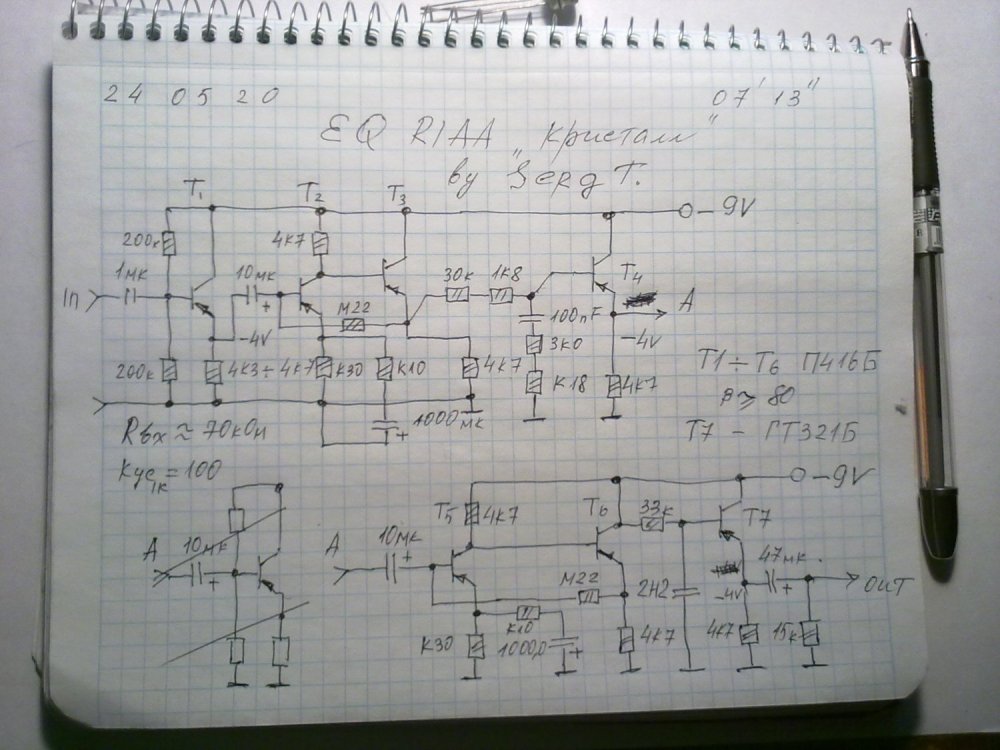 24 05 20
07' 13"
EQ RIAA „Кристалл"
by Serg T.
T1 T2 T3
-9V
200к 4к7
1мк 10мк 30к 1к8 T4
In + М22 100nF A
-4V 3к0 -4V
200к 4к3÷4к7 к30 к10 4к7 к18 4к7
+ 1000мк
T1÷T6 П416Б
β≥80
T7 - ГТ321Б
Rвх ≈ 70кОм
Кус1к = 100
-9V
T5 4к7 T6 33к T7
A 10мк + A 10мк + 47мк +
М22 2Н2 -4V OUT
к30 к10 1000,0 + 4к7 4к7 15к